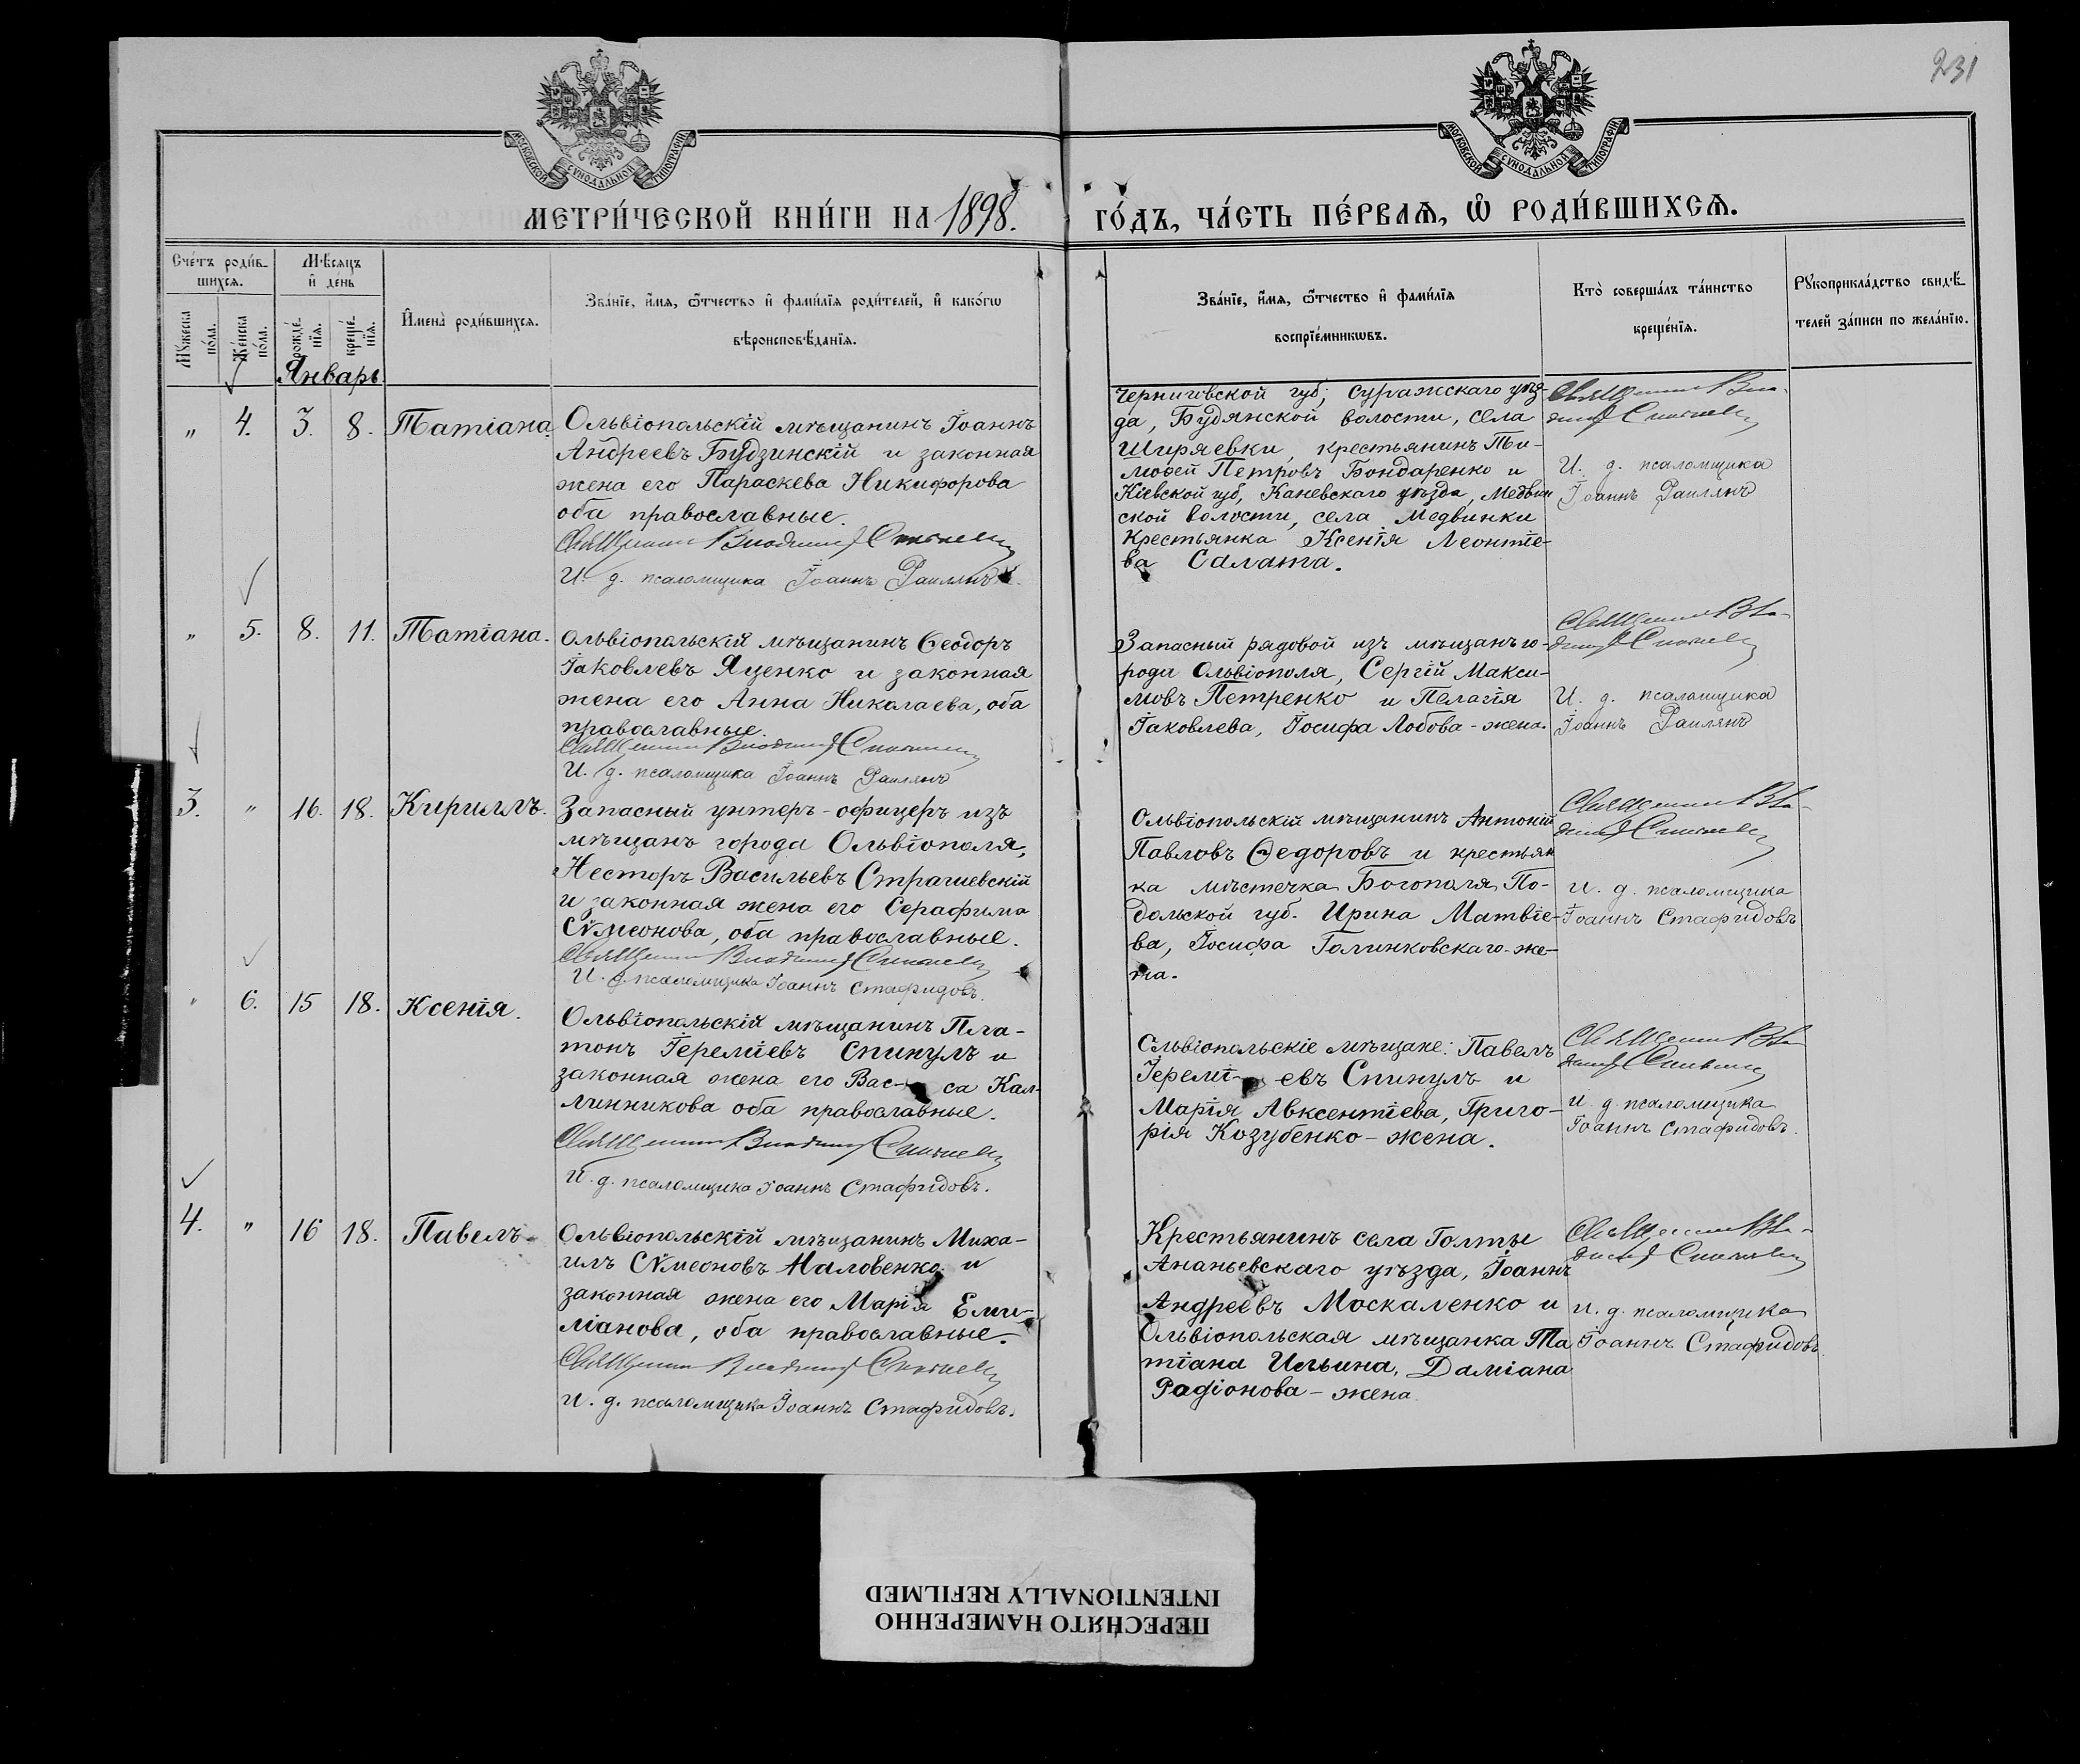 231
МОСКОВСКОЙ СѴНОДАЛЬНОЙ ТИПОГРАФІИ
МОСКОВСКОЙ СѴНОДАЛЬНОЙ ТИПОГРАФІИ
МЕТРИ́ЧЕСКОЙ КНИ́ГИ НА 1898. ГО́ДЪ, ЧА́СТЬ ПЕ́РВАѦ, Ѡ҃ РОДИ́ВШИХСѦ.
Сче́тъ роди́в-
шихсѧ.
Мꙋ́жеска по́ла.
Же́нска по́ла.
Мѣ́сѧцъ
и҆ де́нь
рожде́-
нїѧ.
креще́-
нїѧ.
И҆мена̀ роди́вшихсѧ.
Зва́нїе, и҆́мѧ, ѻ҆́тчество и҆ фами́лїѧ роди́телей, и҆ како́гѡ
вѣроисповѣ́данїѧ.
Зва́нїе, и҆́мѧ, ѻ҆́тчество и҆ фами́лїѧ
воспрїе́мникѡвъ.
Кто̀ соверша́лъ та́инство
креще́нїѧ.
Рꙋкоприкла́дство свидѣ́-
телей за́писи по жела́нїю.
Январь
„ 4. 3. 8. Татіана.
Ольвіопольскій мѣщанинъ Іоаннъ
Андреевъ Будзинскій и законная
жена его Параскева Никифорова
оба православные.
Священникъ Владимір
И. д. псаломщика Іоаннъ
Черниговской губ; Суражскаго уѣз-
да, Будянской волости, села
Ширяевки, крестьянинъ Ти-
мофей Петровъ Бондаренко и
Кіевской губ, Каневскаго уѣзда, Медвин
ской волости, села Медвинки
крестьянка Ксенія Леонтіе-
ва Салата.
Священникъ Вла-
димір
И. д. псаломщика
Іоаннъ
„ 5. 8. 11. Татіана.
Ольвіопольскій мѣщанинъ Ѳеодоръ
Іаковлевъ Яценко и законная
жена его Анна Николаева, оба
православные.
Священникъ Владимір
И. д. псаломщика Іоаннъ
Запасный рядовой изъ мѣщанъ го-
рода Ольвіополя, Сергій Макси-
мовъ Петренко и Пелагія
Іаковлева, Іосифа Лобова - жена.
Священникъ Вла-
димір
И. д. псаломщика
Іоаннъ
3. „ 16. 18. Кириллъ.
Запасный унтеръ-офицеръ изъ
мѣщанъ города Ольвіополя,
Несторъ Васильевъ Страшевскій
и законная жена его Серафима
Сѵмеонова, оба православные.
Священникъ Владимір
И. д. псаломщика Іоаннъ Стафидовъ.
Ольвіопольскій мѣщанинъ Антоній
Павловъ Ѳедоровъ и крестьян
ка мѣстечка Богополя, По-
дольской губ. Ирина Матвіе-
ва, Іосифа Голинковскаго-же-
на.
Священникъ Вла-
димір
И. д. псаломщика
Іоаннъ Стафидовъ
„ 6. 15 18. Ксенія.
Ольвіопольскій мѣщанинъ Пла-
тонъ Іереміевъ Спинулъ и
законная жена его Вас- са Кал-
линникова оба православные.
Священникъ Владимір
И. д. псаломщика Іоаннъ Стафидовъ.
Ольвіопольскіе мѣщане: Павелъ
Іеремі- евъ Спинулъ и
Марія Авксентіева, Григо-
рія Козубенко - жена.
Священникъ Вла-
димір
И. д. псаломщика
Іоаннъ Стафидовъ.
4. „ 16 18. Павелъ.
Ольвіопольскій мѣщанинъ Миха-
илъ Сѵмеоновъ Маловенко и
законная жена его Марія Еми-
ліанова, оба православные.
Священникъ Владимір
И. д. псаломщика Іоаннъ Стафидовъ.
Крестьянинъ села Голты
Ананьевскаго уѣзда, Іоаннъ
Андреевъ Москаленко и
Ольвіопольская мѣщанка Та
тіана Ильина, Даміана
Радіонова - жена
Священникъ Вла-
димір
И. д. псаломщика
Іоаннъ Стафидовъ.
ПЕРЕСНЯТО НАМЕРЕННО
INTENTIONALLY REFILMED